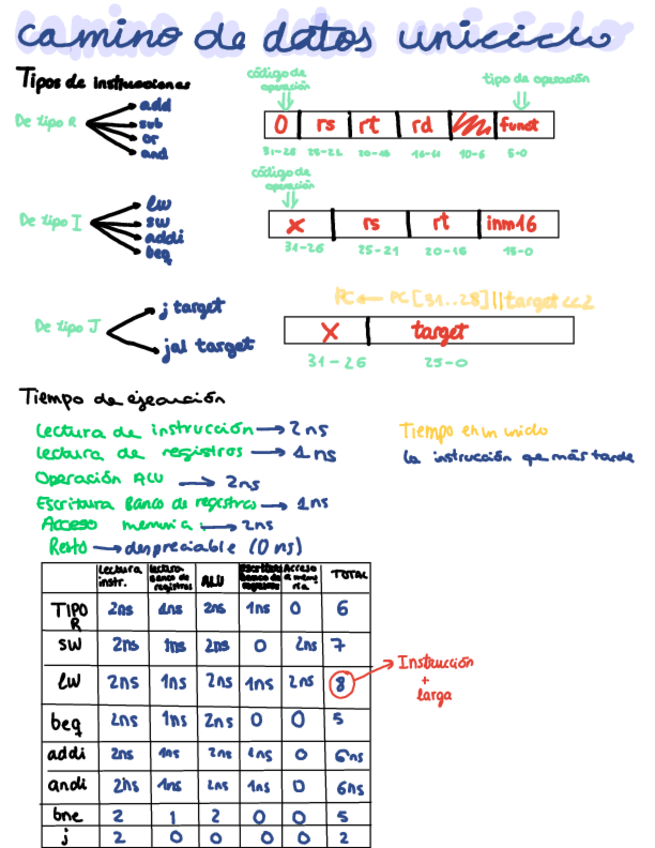 camino de datos uniciclo
Tipos de instrucciones
código de operación
tipo de operación
De tipo R
add
sub
or
and
0 rs rt rd funct
31-26 25-21 20-16 10-6 5-0
código de operación
De tipo I
lw
sw
addi
beq
x rs rt inm16
31-26 25-21 20-16 15-0
PC ← PC[31..28]||target<<2
De tipo J
j target
jal target
X target
31-26 25-0
Tiempo de ejecución
Lectura de instrucción → 2ns
lectura de registros → 1ns
Operación ALU → 2ns
Escritura Banco de registros → 1ns
Acceso memoria → 2ns
Resto → despreciable (0ns)
Tiempo en un uniclo
la instrucción que más tarde
Lectura instr. lectura banco de registros ALU Escritura banco de registros Acceso a memoria TOTAL
TIPO R 2ns 1ns 2ns 1ns 0 6
sw 2ns 1ns 2ns 0 2ns 7
lw 2ns 1ns 2ns 1ns 2ns 8
Instrucción + larga
beq 2ns 1ns 2ns 0 0 5
addi 2ns 1ns 2ns 1ns 0 6ns
andi 2ns 1ns 2ns 1ns 0 6ns
bne 2 1 2 0 0 5
j 2 0 0 0 0 2